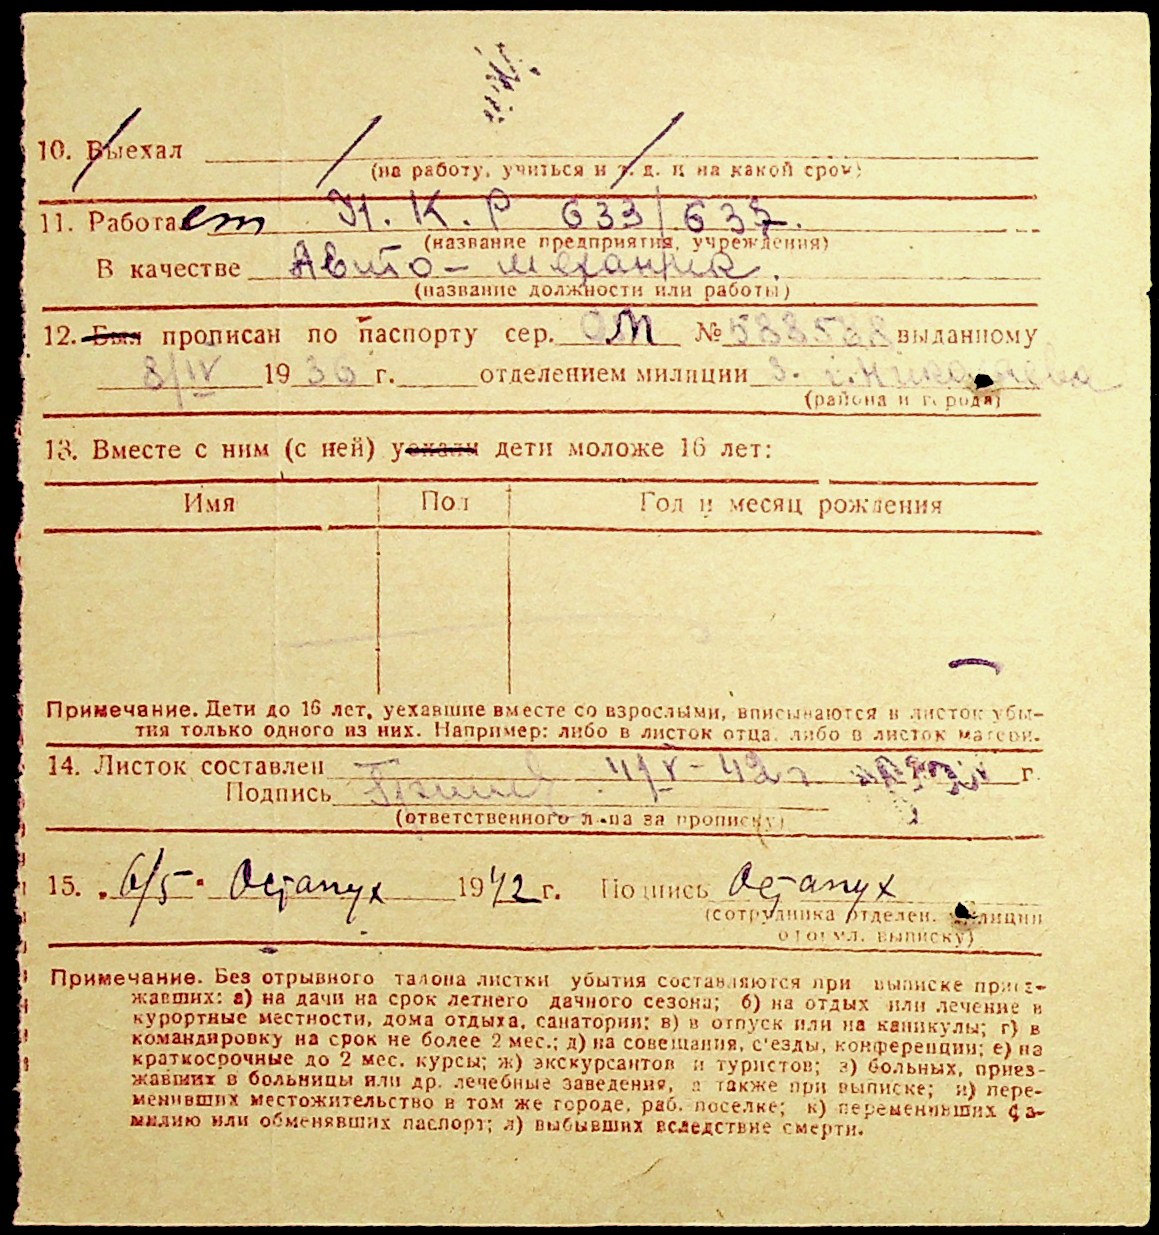 10. Выехал
(на работу, учиться и т. д. и на какой срок)
11. Работает Н. К. Р 633/635.
(название предприятия, учреждения)
В качестве Авто-механик.
(название должности или работы)
12. Был прописан по паспорту сер. № 588588 выданному
8/IV 1936 г. отделением милиции 3. г. Николаева
(района и города)
13. Вместе с ним (с ней) уехали дети моложе 16 лет:
Имя Пол Год и месяц рождения
Примечание. Дети до 16 лет, уехавшие вместе со взрослыми, вписываются в листок убы-
тия только одного из них. Например: либо в листок отца, либо в листок матери.
14. Листок составлен 4/V-42 г г.
Подпись
(ответственного лица за прописку)
15. „6/5" Остапух 1942 г. Подпись Остапух
(сотрудника отделен. милиции
оформл. выписку)
Примечание. Без отрывного талона листки убытия составляются при выписке приез-
жавших: а) на дачи на срок летнего дачного сезона; б) на отдых или лечение в
курортные местности, дома отдыха, санатории; в) в отпуск или на каникулы; г) в
командировку на срок не более 2 мес.; д) на совещания, с'езды, конференции; е) на
краткосрочные до 2 мес. курсы; ж) экскурсантов и туристов; з) больных, приез-
жавших в больницы или др. лечебные заведения, а также при выписке; и) пере-
менивших местожительство в том же городе, раб. поселке; к) переменивших фа-
милию или обменявших паспорт; л) выбывших вследствие смерти.